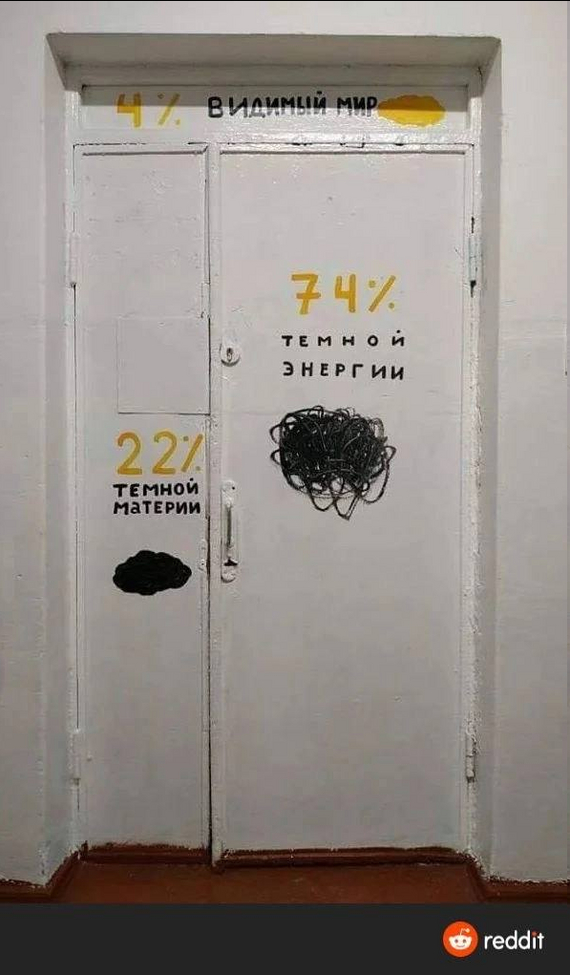 4% ВИДИМЫЙ МИР
74%
ТЕМНОЙ
ЭНЕРГИИ
22%
ТЕМНОЙ
МаТЕРИИ
reddit